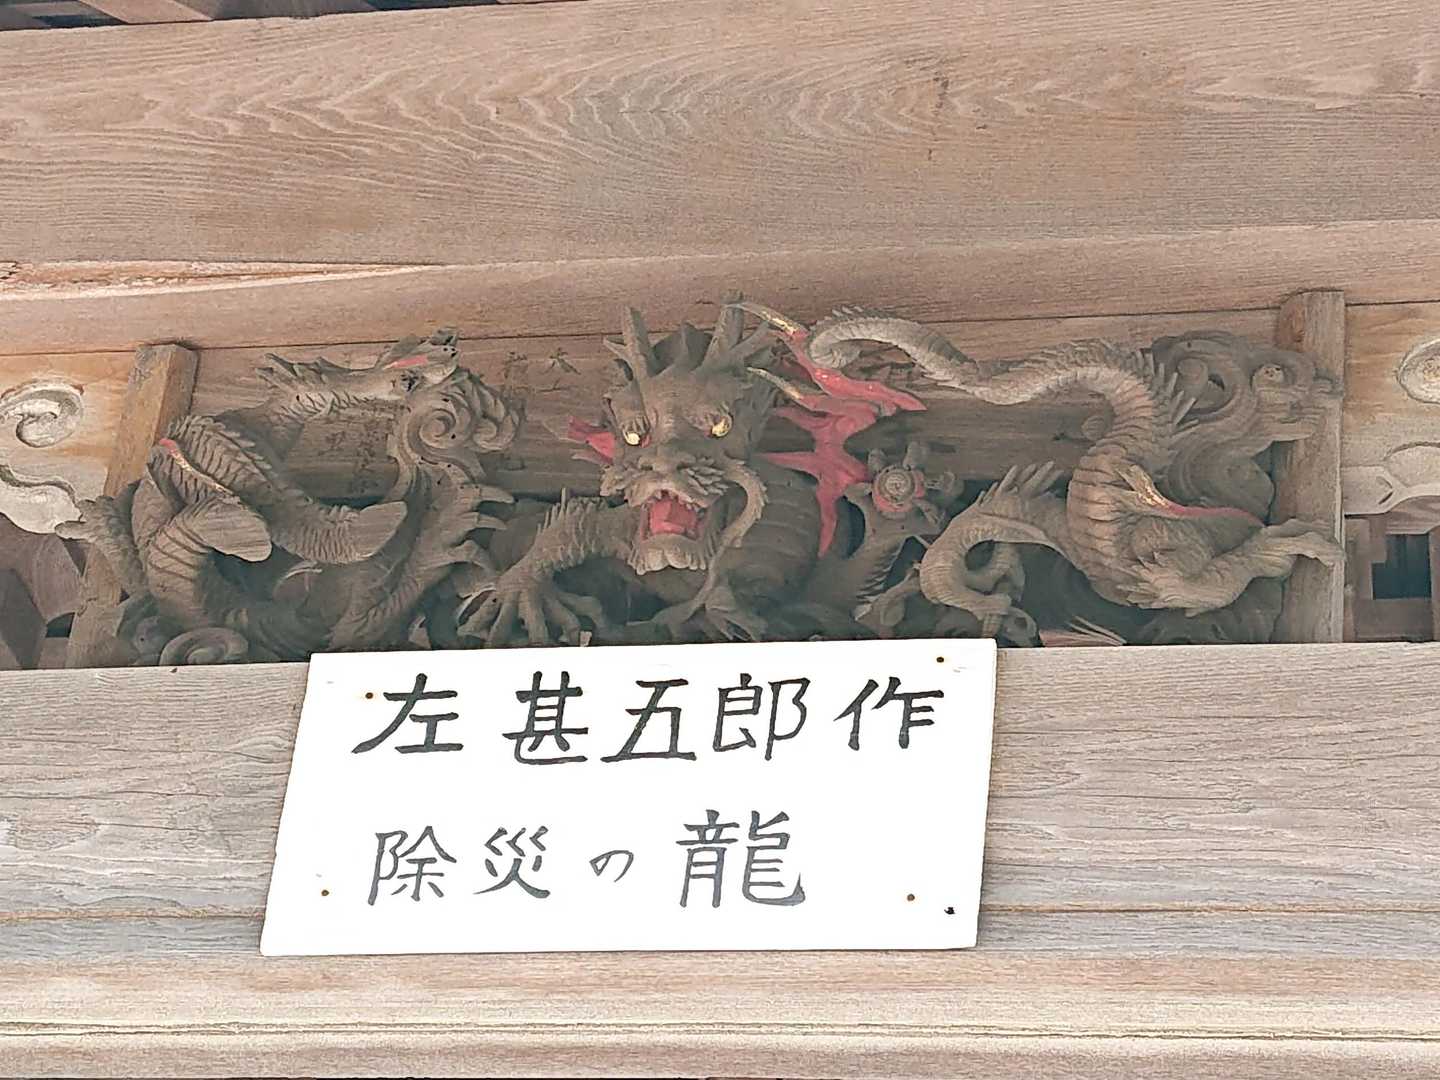 左甚五郎作
除災の龍